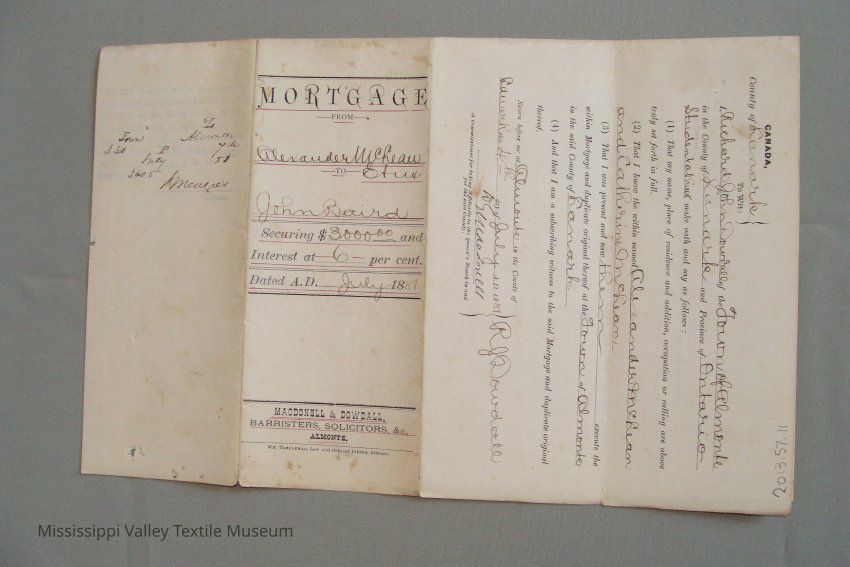 MORTGAGE
FROM
Alexander McLean
Et ux
TO
John Baird
Securing $3000.00 and
Interest at 6 per cent.
Dated A.D. July 1881
MACDONELL & DOWDALL,
BARRISTERS, SOLICITORS, &c.,
ALMONTE.
Wm. Templeman, Law and General Printer, Almonte.
CANADA,
County of Lanark
To Wit:
I, Richard John Dowdall of the Town of Almonte
in the County of Lanark and Province of Ontario
Student at Law, make oath and say as follows:
(1) That my name, place of residence and addition, occupation or calling are above
truly set forth in full.
(2) That I know the within named Alexander McLean
and Catherine McLean
(3) That I was present and saw them execute the
within Mortgage and duplicate original thereof at the Town of Almonte
in the said County of Lanark
(4) And that I am a subscribing witness to the said Mortgage and duplicate original
thereof.
Sworn before me at Almonte in the County of
Lanark this day of July A.D. 1881
R J Dowdall
A Commissioner for taking affidavits in the Queen's Bench in and
for the said County.
2013.57.11
Mississippi Valley Textile Museum